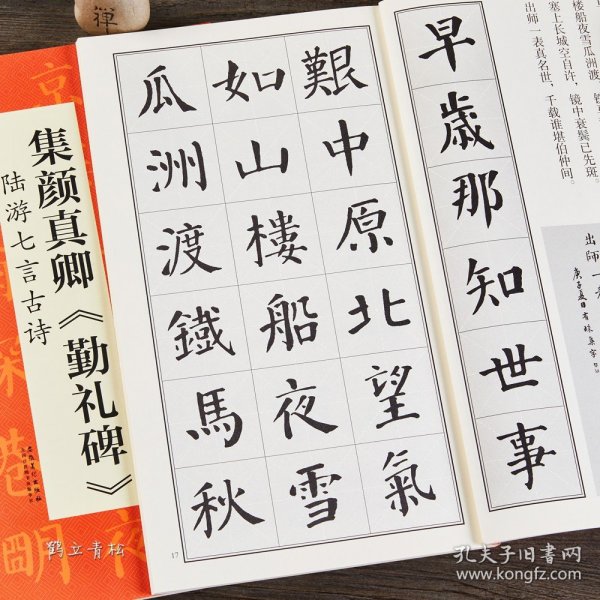 早歲那知世事
艱中原北望氣
如山樓船夜雪
瓜洲渡鐵馬秋
17
楼船夜雪瓜洲渡
塞上长城空自许，镜中衰鬓已先斑。
出师一表真名世，千载谁堪伯仲间。
出師一
集颜真卿《勤礼碑》
陆游七言古诗
禅
鹤立青松
孔夫子旧书网
www.kongfz.com